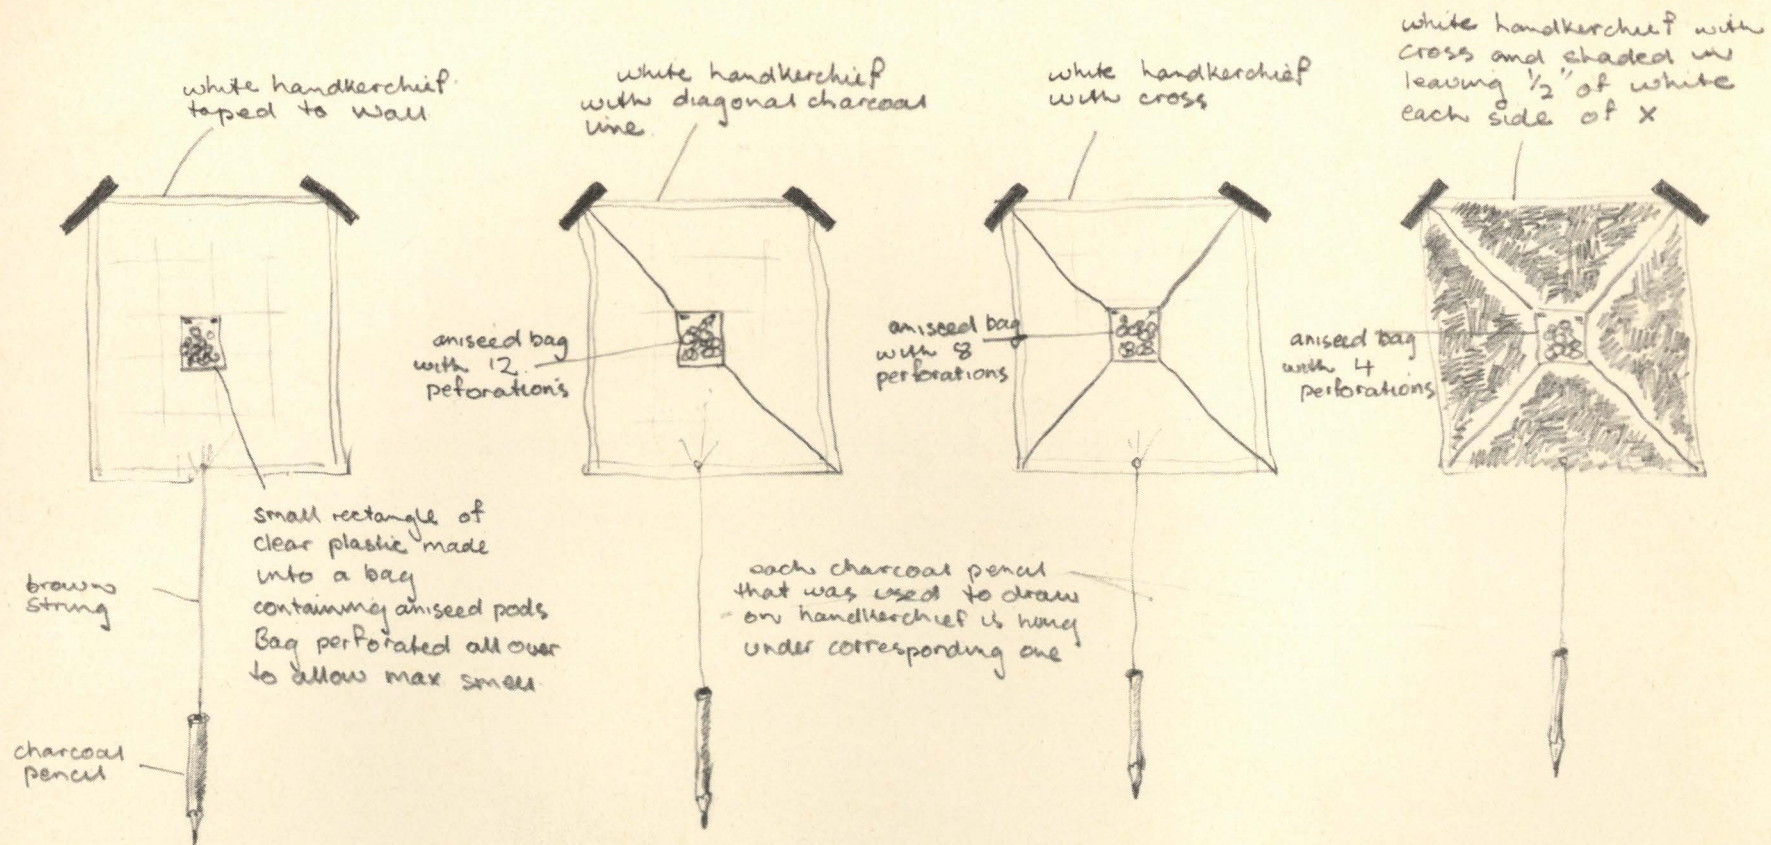 white handkerchief
taped to wall
white handkerchief
with diagonal charcoal
line.
white handkerchief
with cross
white handkerchief with
cross and shaded in
leaving 1/2" of white
each side of X
aniseed bag
with 12
peforations
aniseed bag
with 8
perforations
aniseed bag
with 4
perforations
small rectangle of
clear plastic made
into a bag
containing aniseed pods
Bag perforated all over
to allow max smell
brown
string
each charcoal pencil
that was used to draw
on handkerchief is hung
under corresponding one
charcoal
pencil